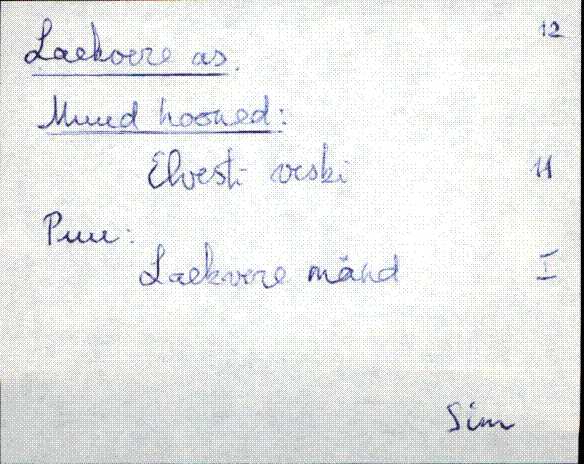 12
Laekvere as.
Muud hooned:
Elvesti veski 11
Puu:
Laekvere mänd I
Sim